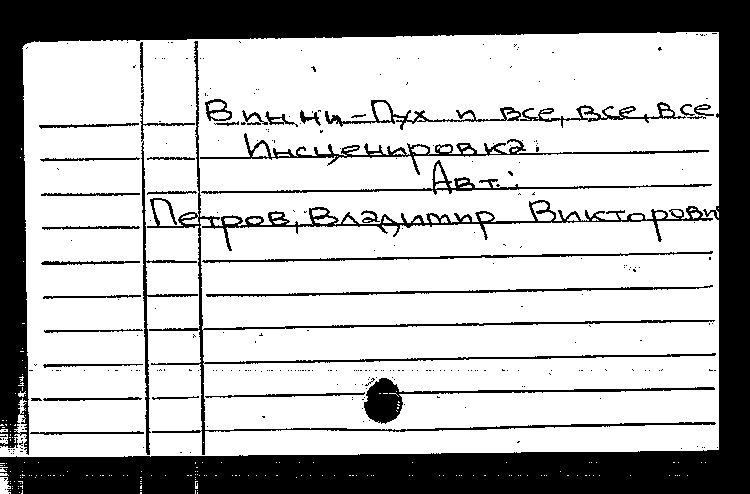 Винни-Пух и все, все, все.
Инсценировка.
Авт.:
Петров, Владимир Викторови